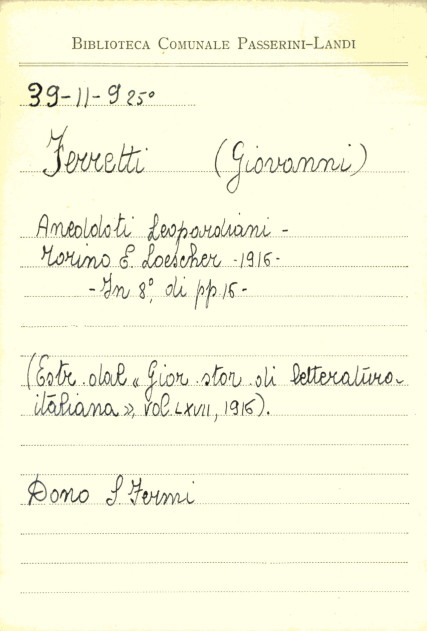 BIBLIOTECA COMUNALE PASSERINI-LANDI
39-11-9 25º
Ferretti (Giovanni)
Aneddoti Leopardiani -
Torino E. Loescher - 1916 -
- In 8º, di pp. 16 -
(Estr. dal « Gior. stor. di letteratura
italiana », vol. LXVII, 1916).
Dono S. Fermi